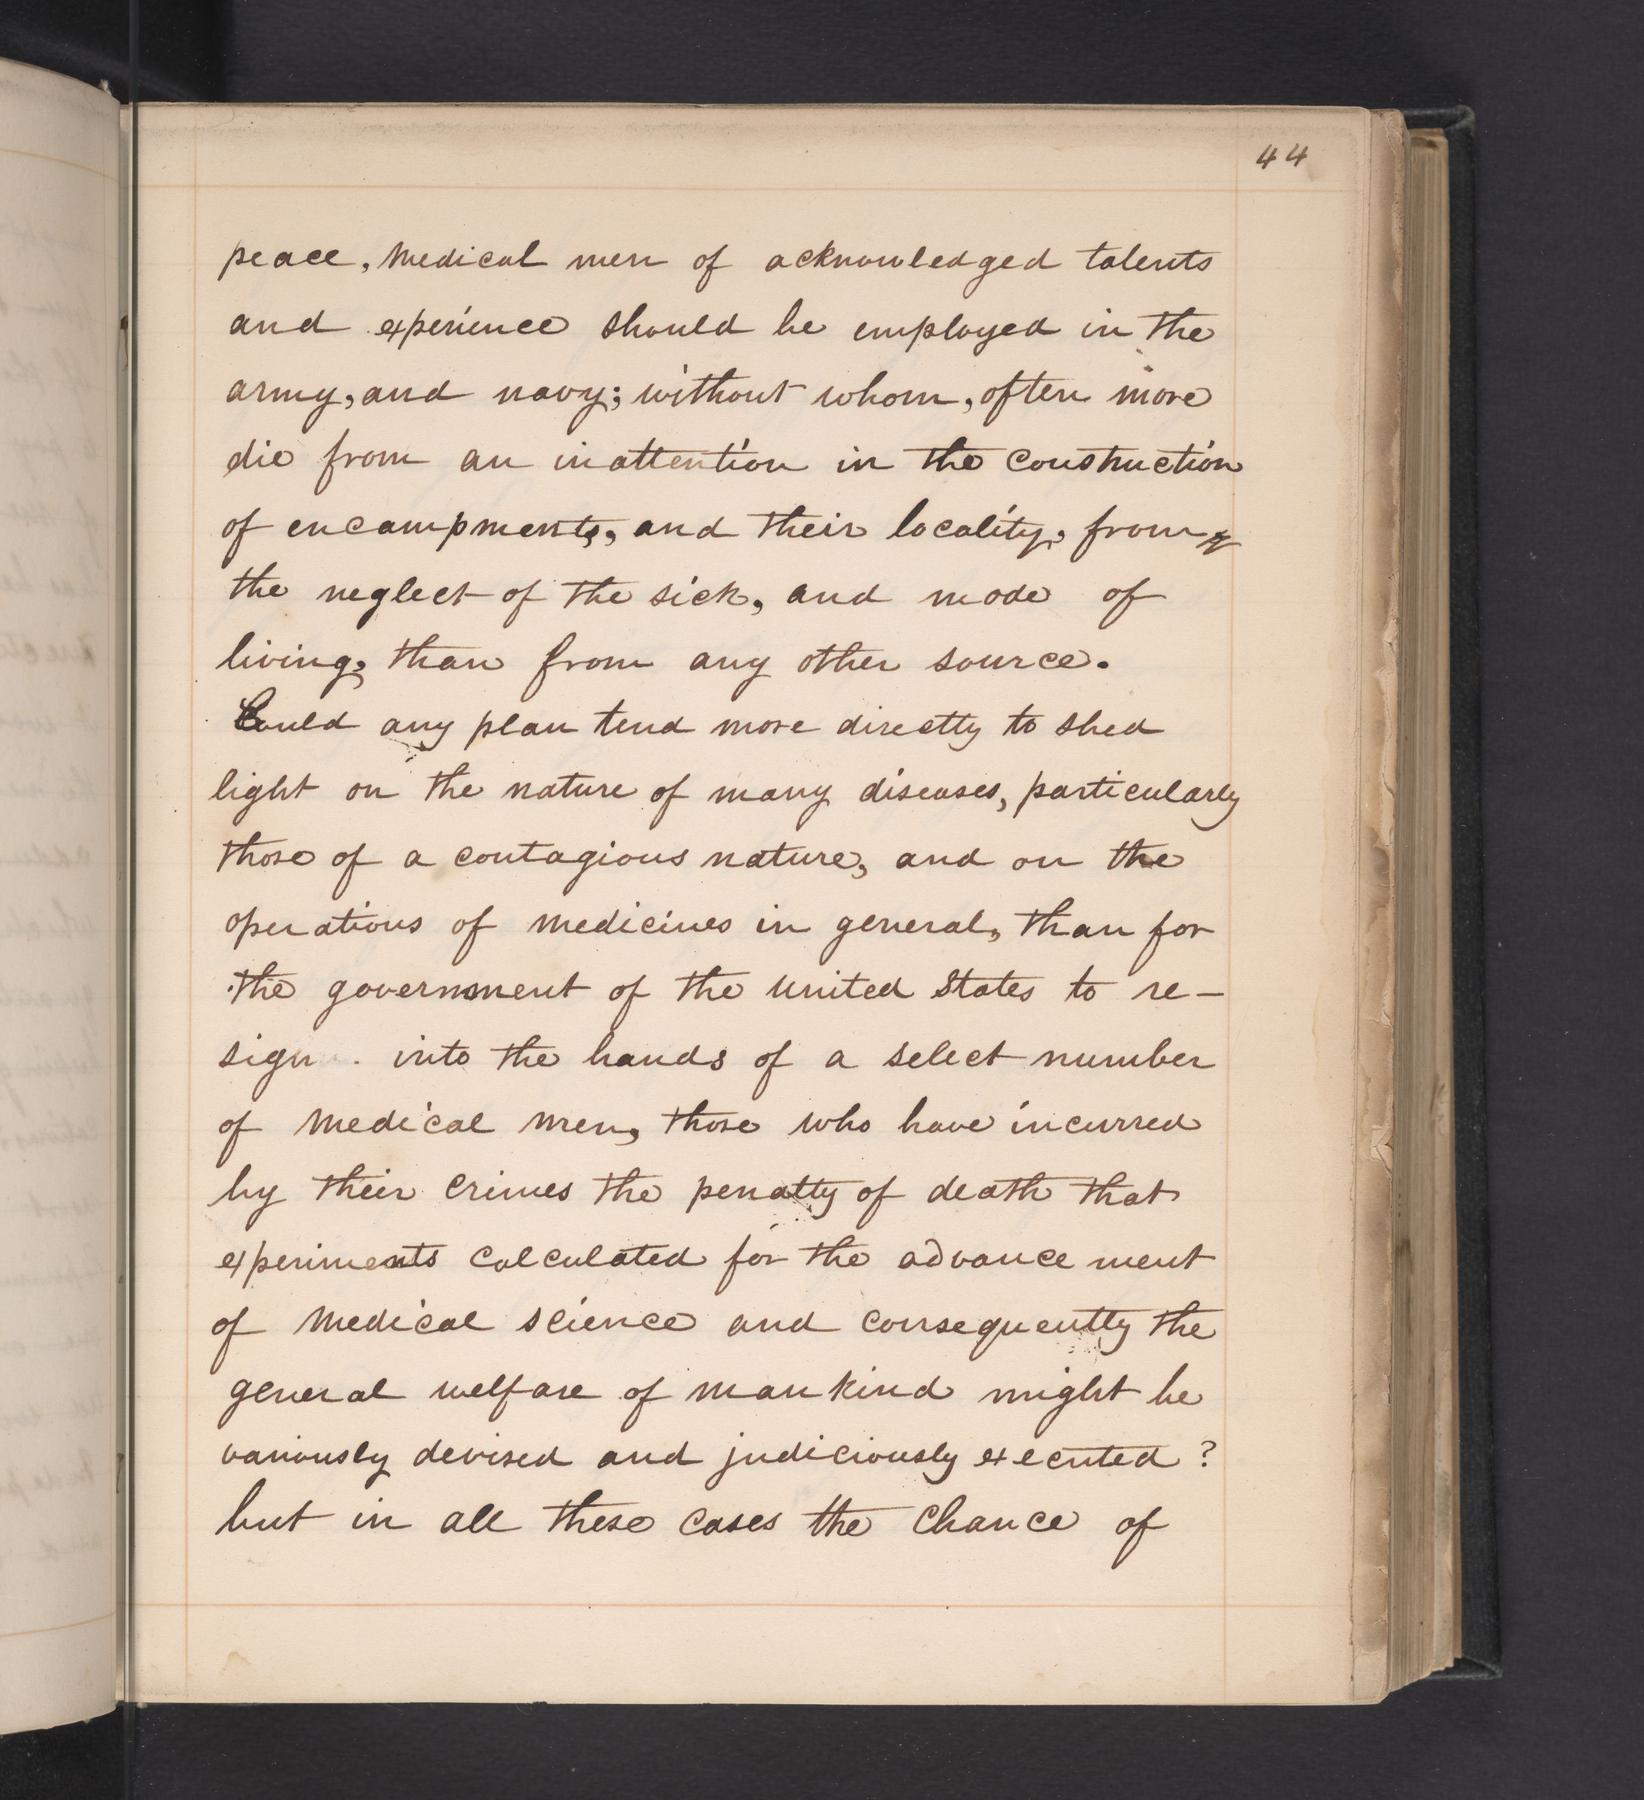 44
peace, Medical men of acknowledged talents
and experience should be employed in the
army, and navy; without whom, often more
die from an inattention in the construction
of encampments, and their locality, from
the neglect of the sick, and mode of
living, than from any other source.
Could any plan tend more directly to shed
light on the nature of many diseases, particularly
those of a contagious nature, and on the
operations of medicines in general, than for
the government of the United States to re-
sign . into the hands of a select number
of Medical men, those who have incurred
by their crimes the penalty of death that
experiments calculated for the advancement
of Medical science and consequently the
general welfare of mankind might be
variously devised and judiciously executed?
but in all these cases the chance of